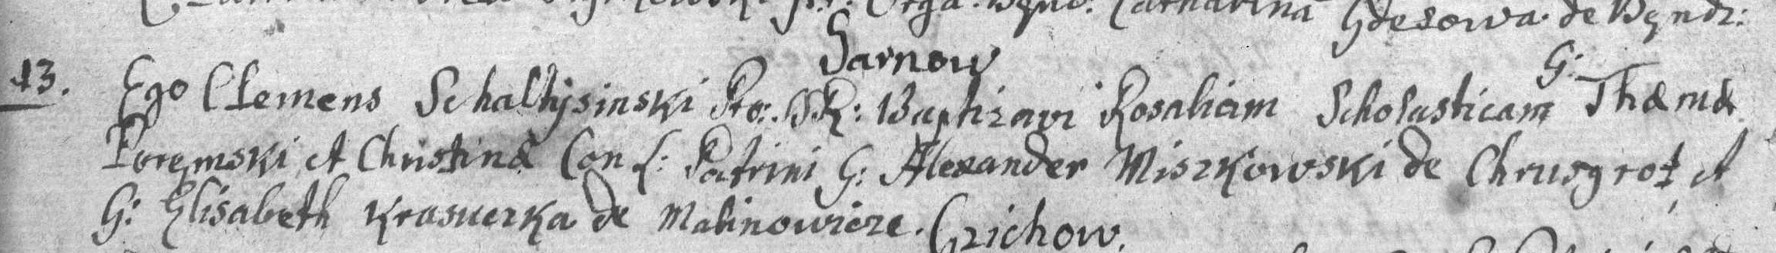 Orga: Catharina Gdesowa de Byndz:
Sarnow
13. Ego Clemens Schaltysinski Baptizavi Rosaliam Scholasticam G: Thomæ
Poremski et Christinæ Con: l: Patrini G: Alexander Miszkowski de Chrusgrot et
G: Elisabeth Krasuczka de Malinowicze. Grichow.